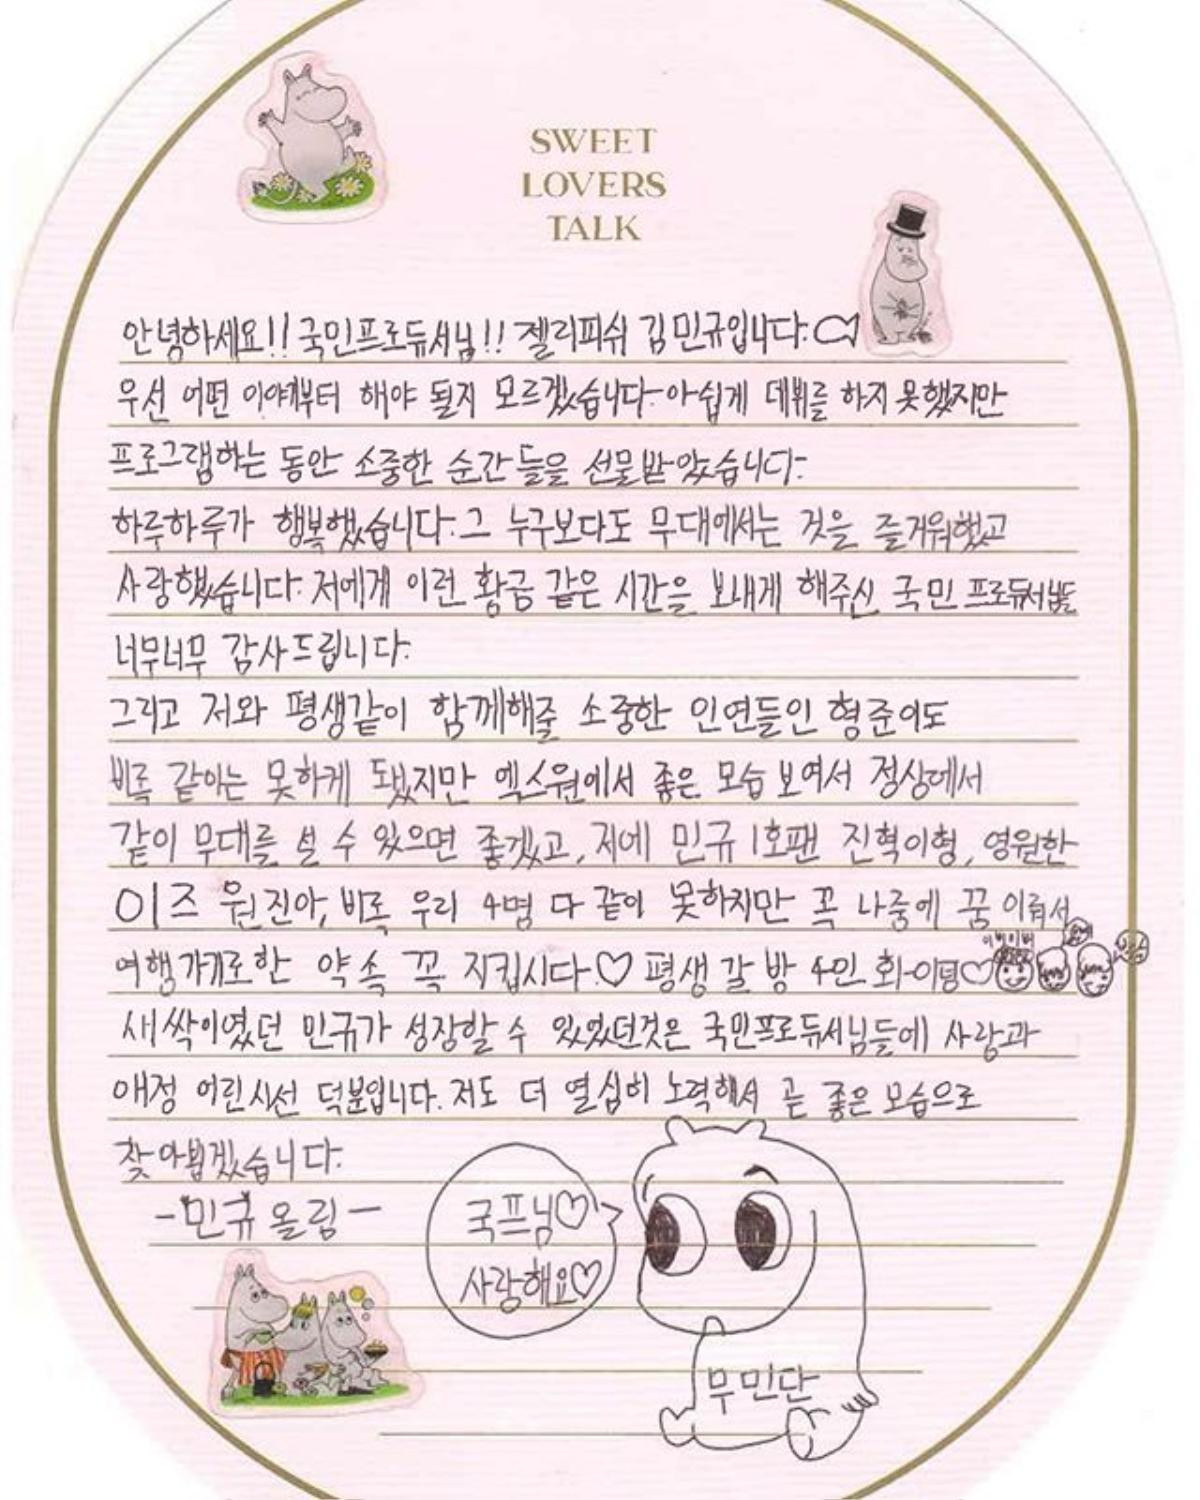 SWEET
LOVERS
TALK
안녕하세요!! 국민프로듀서님!! 젤리피쉬 김민규입니다.
우선 어떤 이야기부터 해야 될지 모르겠습니다. 아쉽게 데뷔를 하지 못했지만
프로그램하는 동안 소중한 순간들을 선물받았습니다.
하루하루가 행복했습니다. 그 누구보다도 무대에서는 것을 즐거워했고
사랑했습니다. 저에게 이런 황금 같은 시간을 보내게 해주신 국민 프로듀서님들
너무너무 감사드립니다.
그리고 저와 평생같이 함께해줄 소중한 인연들인 형준이도
비록 같이는 못하게 됐지만 엑스원에서 좋은 모습 보여서 정상에서
같이 무대를 설 수 있으면 좋겠고, 저에 민규 1호팬 진혁이형, 영원한
이즈 원진아, 비록 우리 4명 다 같이 못하지만 꼭 나중에 꿈 이뤄서
여행가기로한 약속 꼭 지킵시다♡ 평생 갈 방 4인 화이팅♡
새싹이였던 민규가 성장할 수 있었던것은 국민프로듀서님들에 사랑과
애정 어린시선 덕분입니다. 저도 더 열심히 노력해서 곧 좋은 모습으로
찾아뵙겠습니다.
-민규올림-
국프님♡
사랑해요♡
무민단